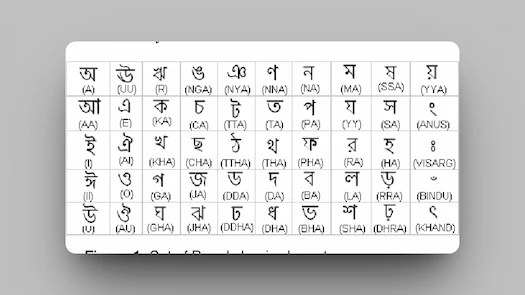 অ ঊ ঋ ঙ ঞ ণ ন ম ষ য়
(A) (UU) (R) (NGA) (NYA) (NNA) (NA) (MA) (SSA) (YYA)
আ এ ক চ ট ত প য স ং
(AA) (E) (KA) (CA) (TTA) (TA) (PA) (YY) (SA) (ANUS)
ই ঐ খ ছ ঠ থ ফ র হ ঃ
(I) (AI) (KHA) (CHA) (TTHA) (THA) (PHA) (RA) (HA) (VISARG)
ঈ ও গ জ ড দ ব ল ড় ঁ
(II) (O) (GA) (JA) (DDA) (DA) (BA) (LA) (RRA) (BINDU)
উ ঔ ঘ ঝ ঢ ধ ভ শ ঢ় ৎ
(U) (AU) (GHA) (JHA) (DDHA) (DHA) (BHA) (SHA) (DHRA) (KHAND)